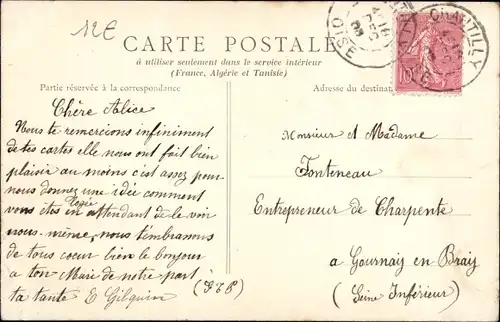 12€
CARTE POSTALE
à utiliser seulement dans le service intérieur
(France, Algérie et Tunisie)
Partie réservée à la correspondance
Adresse du destinat
CHANTILLY
OISE
10
Chère Alice
Nous te remercions infiniment
de tes cartes elle nous ont fait bien
plaisir au moins c'est assez pour
nous donnez une idée comment
vous êtes logée en attendant de le voir
nous-même, nous t'embrasons
de tous cœur bien le bonjour
a ton Mari de notre part
ta tante E Gilquin
(GEB)
Monsieur et Madame
Fonteneau
Entrepreneur de Charpente
a Gournay en Bray
(Seine Inférieur)